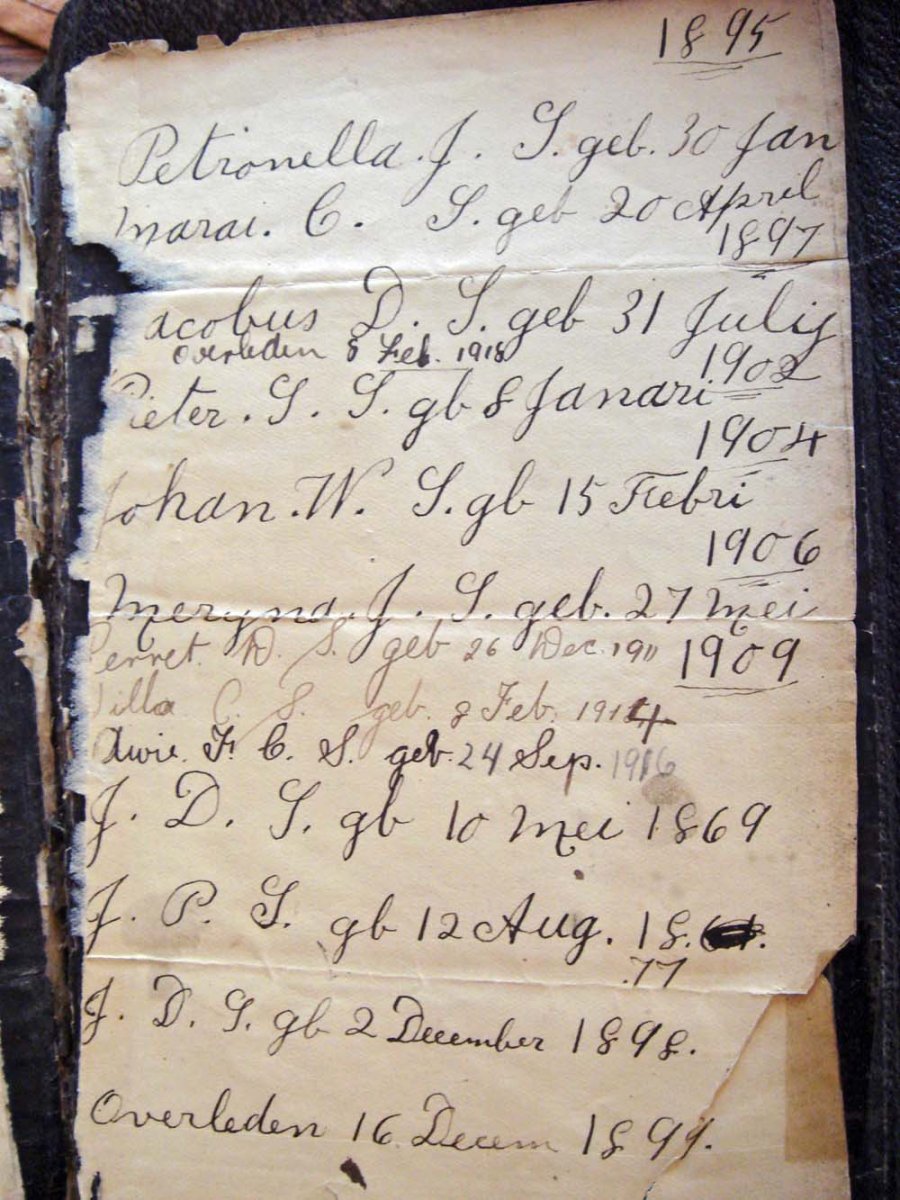 1895
Petronella. J. S. geb. 30 Jan
Marai. C. S. geb 20 April
1897
acobus D. S. geb 31 Julij
Overleden 8 Feb. 1918
1902
ieter. S. S. gb 8 Janari
1904
Johan. W. S. gb 15 Febri
1906
Meryna. J. S. geb. 27 Mei
1909
erret. D. S. geb 26 Dec. 1911
illa C. S. geb. 8 Feb. 1914
F. C. S. geb. 24 Sep. 1916
J. D. S. gb 10 Mei 1869
J. P. S. gb 12 Aug. 18.
.77
J. D. S. gb 2 December 1898.
Overleden 16 Decem 1899.